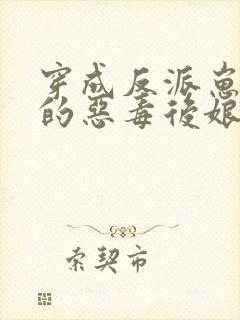 穿成反派崽
的恶毒后娘
索契市